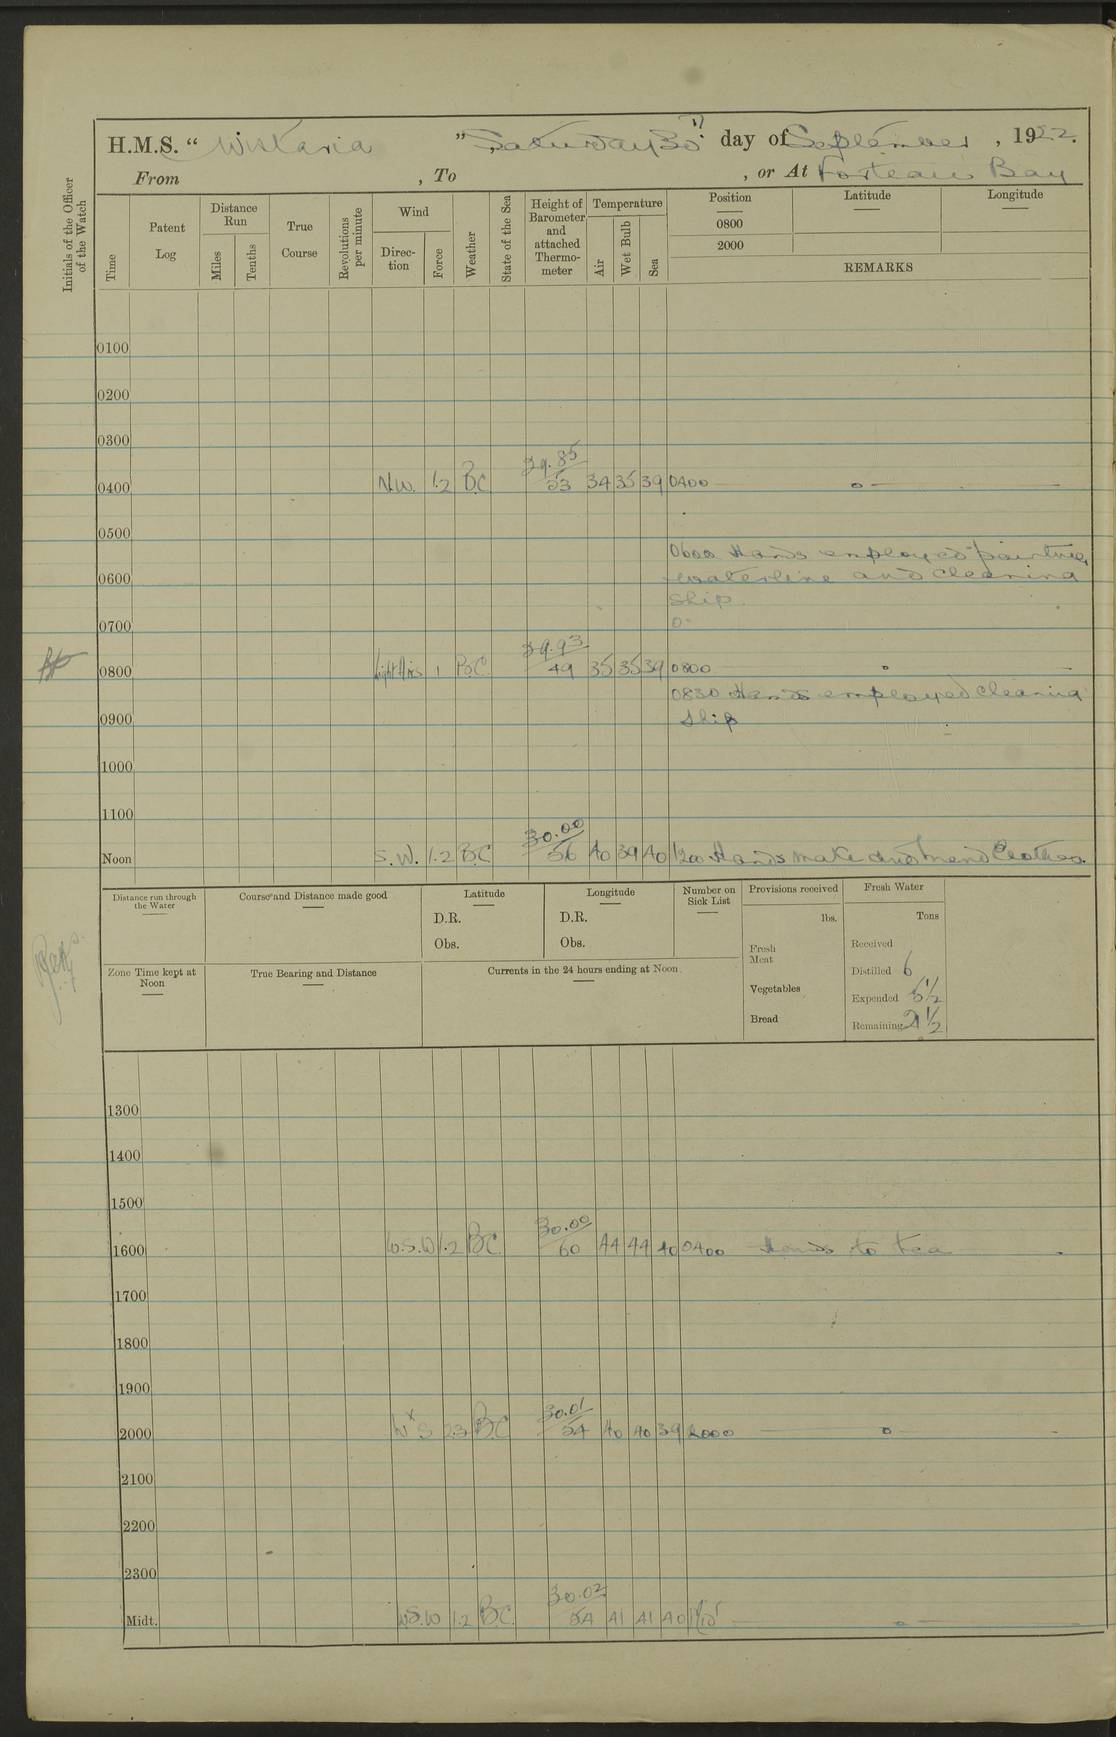 H.M.S. “ Wistaria ”, Saturday 30th day of September, 1922.
From , To , or At Forteau Bay
Initials of the Officer of the Watch
Time
Patent Log
Distance Run
Miles
Tenths
True Course
Revolutions per minute
Wind
Direction
Force
Weather
State of the Sea
Height of Barometer and attached Thermometer
Temperature
Air
Wet Bulb
Sea
Position
Latitude
Longitude
0800
2000
REMARKS
0100
0200
0300
0400 N.W. 1.2 B.C 29.85 53 34 35 39 0400 — o —
0500
0600 Hands employed painting
0600 waterline and cleaning
ship.
0700
0800 Light Airs 1 B.C. 29.93 49 35 35 39 0800 o —
0830 Hands employed cleaning
0900 Ship
1000
1100
Noon S.W. 1.2 B.C 30.00 56 40 39 40 1200 Hands make and mend Clothes.
Distance run through the Water
Course and Distance made good
Latitude
D.R.
Obs.
Longitude
D.R.
Obs.
Number on Sick List
Provisions received
lbs.
Fresh Meat
Vegetables
Bread
Fresh Water
Tons
Received
Distilled 6
Expended 5 1/2
Remaining 21 1/2
Zone Time kept at Noon
True Bearing and Distance
Currents in the 24 hours ending at Noon
1300
1400
1500
1600 W.S.W 1.2 B.C. 30.00 60 44 44 40 0400 Hands to tea
1700
1800
1900
2000 W x S 2.3 B.C 30.01 54 40 40 39 2000 — o —
2100
2200
2300
Midt. W.S.W 1.2 B.C. 30.02 54 41 41 40 — o —